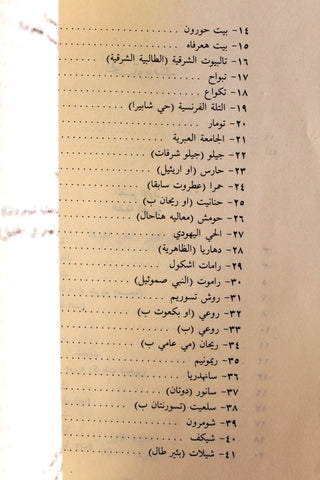 ١٤- بيت حورون
١٥- بيت هعرفاه
١٦- تالبيوت الشرقية (الطالبية الشرقية)
١٧- تبواح
١٨- تكواع
١٩- التلة الفرنسية (حي شابيرا)
٢٠- تومار
٢١- الجامعة العبرية
٢٢- جيلو (جيلو شرفات)
٢٣- حارس (او اريئيل)
٢٤- حمرا (عطروت سابقا)
٢٥- حنانيت (او ريحان ب)
٢٦- حومش (معاليه هناحال)
٢٧- الحي اليهودي
٢٨- دهاريا (الظاهرية)
٢٩- رامات اشكول
٣٠- راموت (النبي صموئيل)
٣١- روش تسوريم
٣٢- روعي (او بكعوت ب)
٣٣- روعي (ب)
٣٤- ريحان (مي عامي ب)
٣٥- ريمونيم
٣٦- سانهدريا
٣٧- سانور (دوتان)
٣٨- سلعيت (تسورنتان ب)
٣٩- شومرون
٤٠- شيكف
٤١- شيلات (بئير طال)